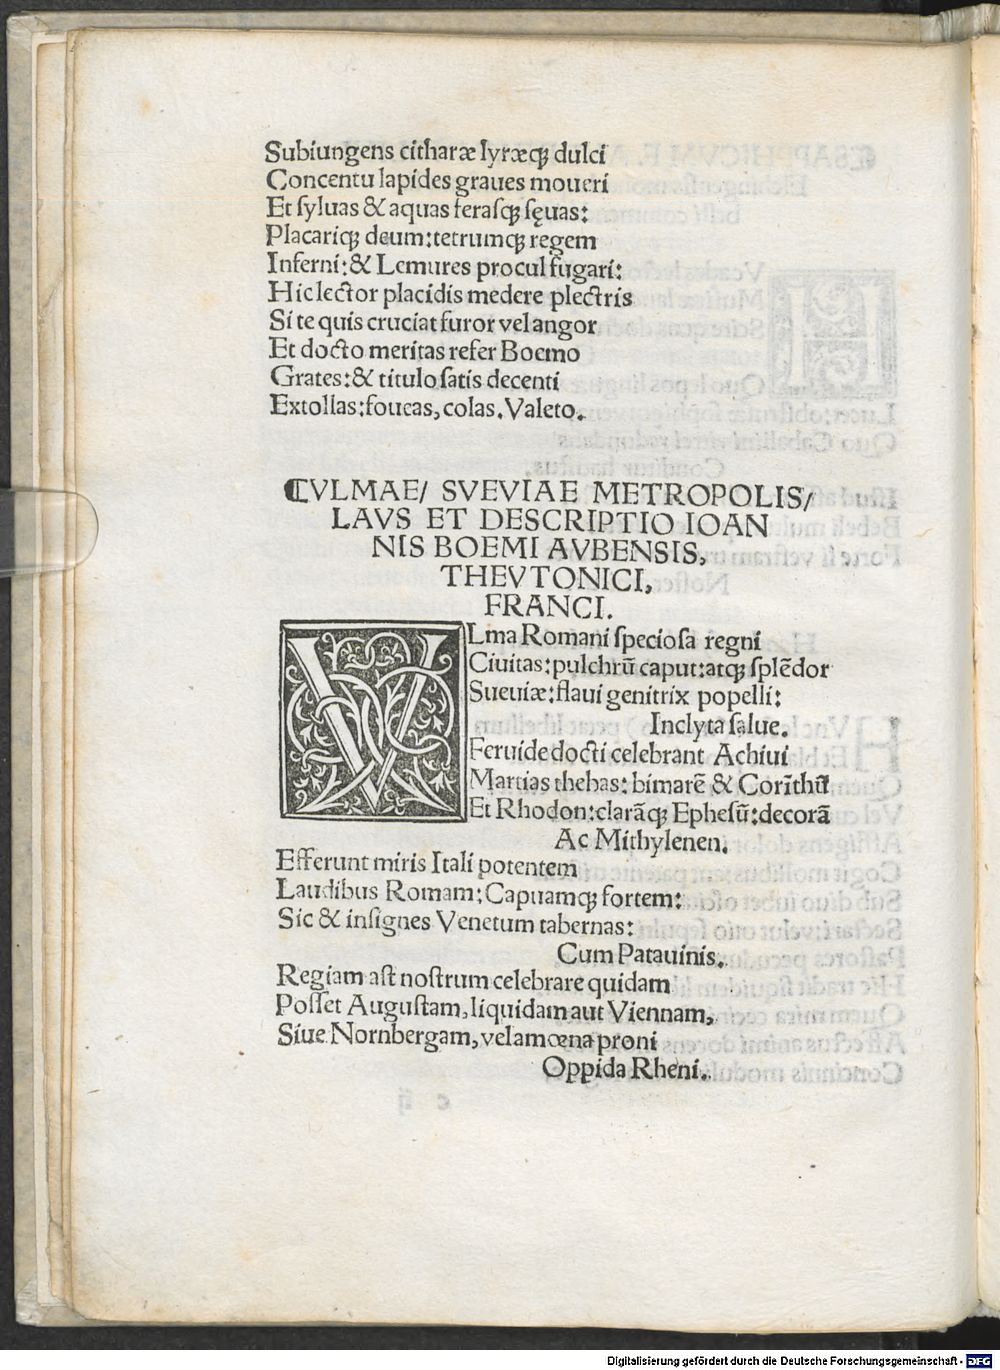 Subiungens citharæ lyræqꝫ dulci
Concentu lapides graues moueri
Et syluas & aquas ferasqꝫ sęuas:
Placariqꝫ deum: tetrumqꝫ regem
Inferni: & Lemures procul fugari:
Hic lector placidis medere plectris
Si te quis cruciat furor vel angor
Et docto meritas refer Boemo
Grates: & titulo satis decenti
Extollas: foueas, colas. Valeto.
⁋VLMAE/ SVEVIAE METROPOLIS/
LAVS ET DESCRIPTIO IOAN
NIS BOEMI AVBENSIS,
THEVTONICI,
FRANCI.
VLma Romani speciosa regni
Ciuitas: pulchrū caput: atqꝫ splēdor
Sueuiæ: flaui genitrix popelli:
Inclyta salue.
Feruide docti celebrant Achiui
Martias thebas: bimarē & Corīthū
Et Rhodon: clarāqꝫ Ephesū: decorā
Ac Mithylenen.
Efferunt miris Itali potentem
Laudibus Romam: Capuamqꝫ fortem:
Sic & insignes Venetum tabernas:
Cum Patauinis.
Regiam ast nostrum celebrare quidam
Posset Augustam, liquidam aut Viennam,
Siue Nornbergam, vel amœna proni
Oppida Rheni.
Digitalisierung gefördert durch die Deutsche Forschungsgemeinschaft - DFG